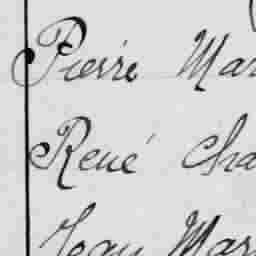 Pierre Mar
René Cha
Jean Mar